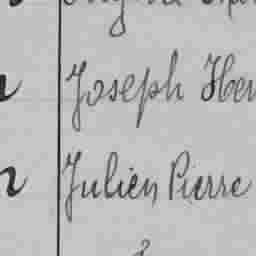 Joseph Hen
Julien Pierre